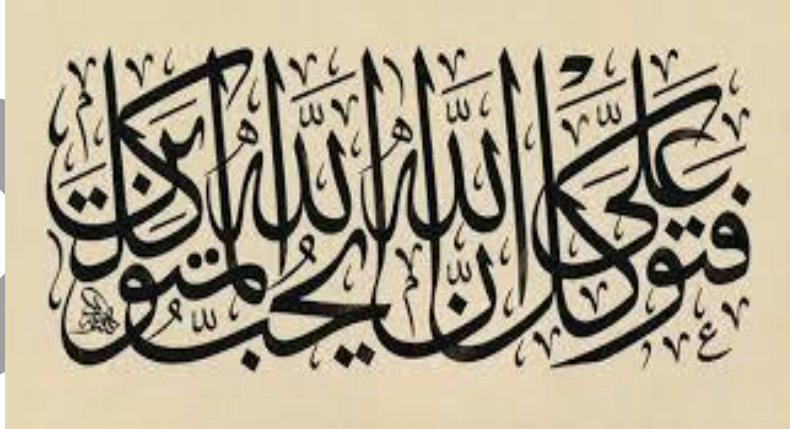 فتوكل على الله ان الله يحب المتوكلين